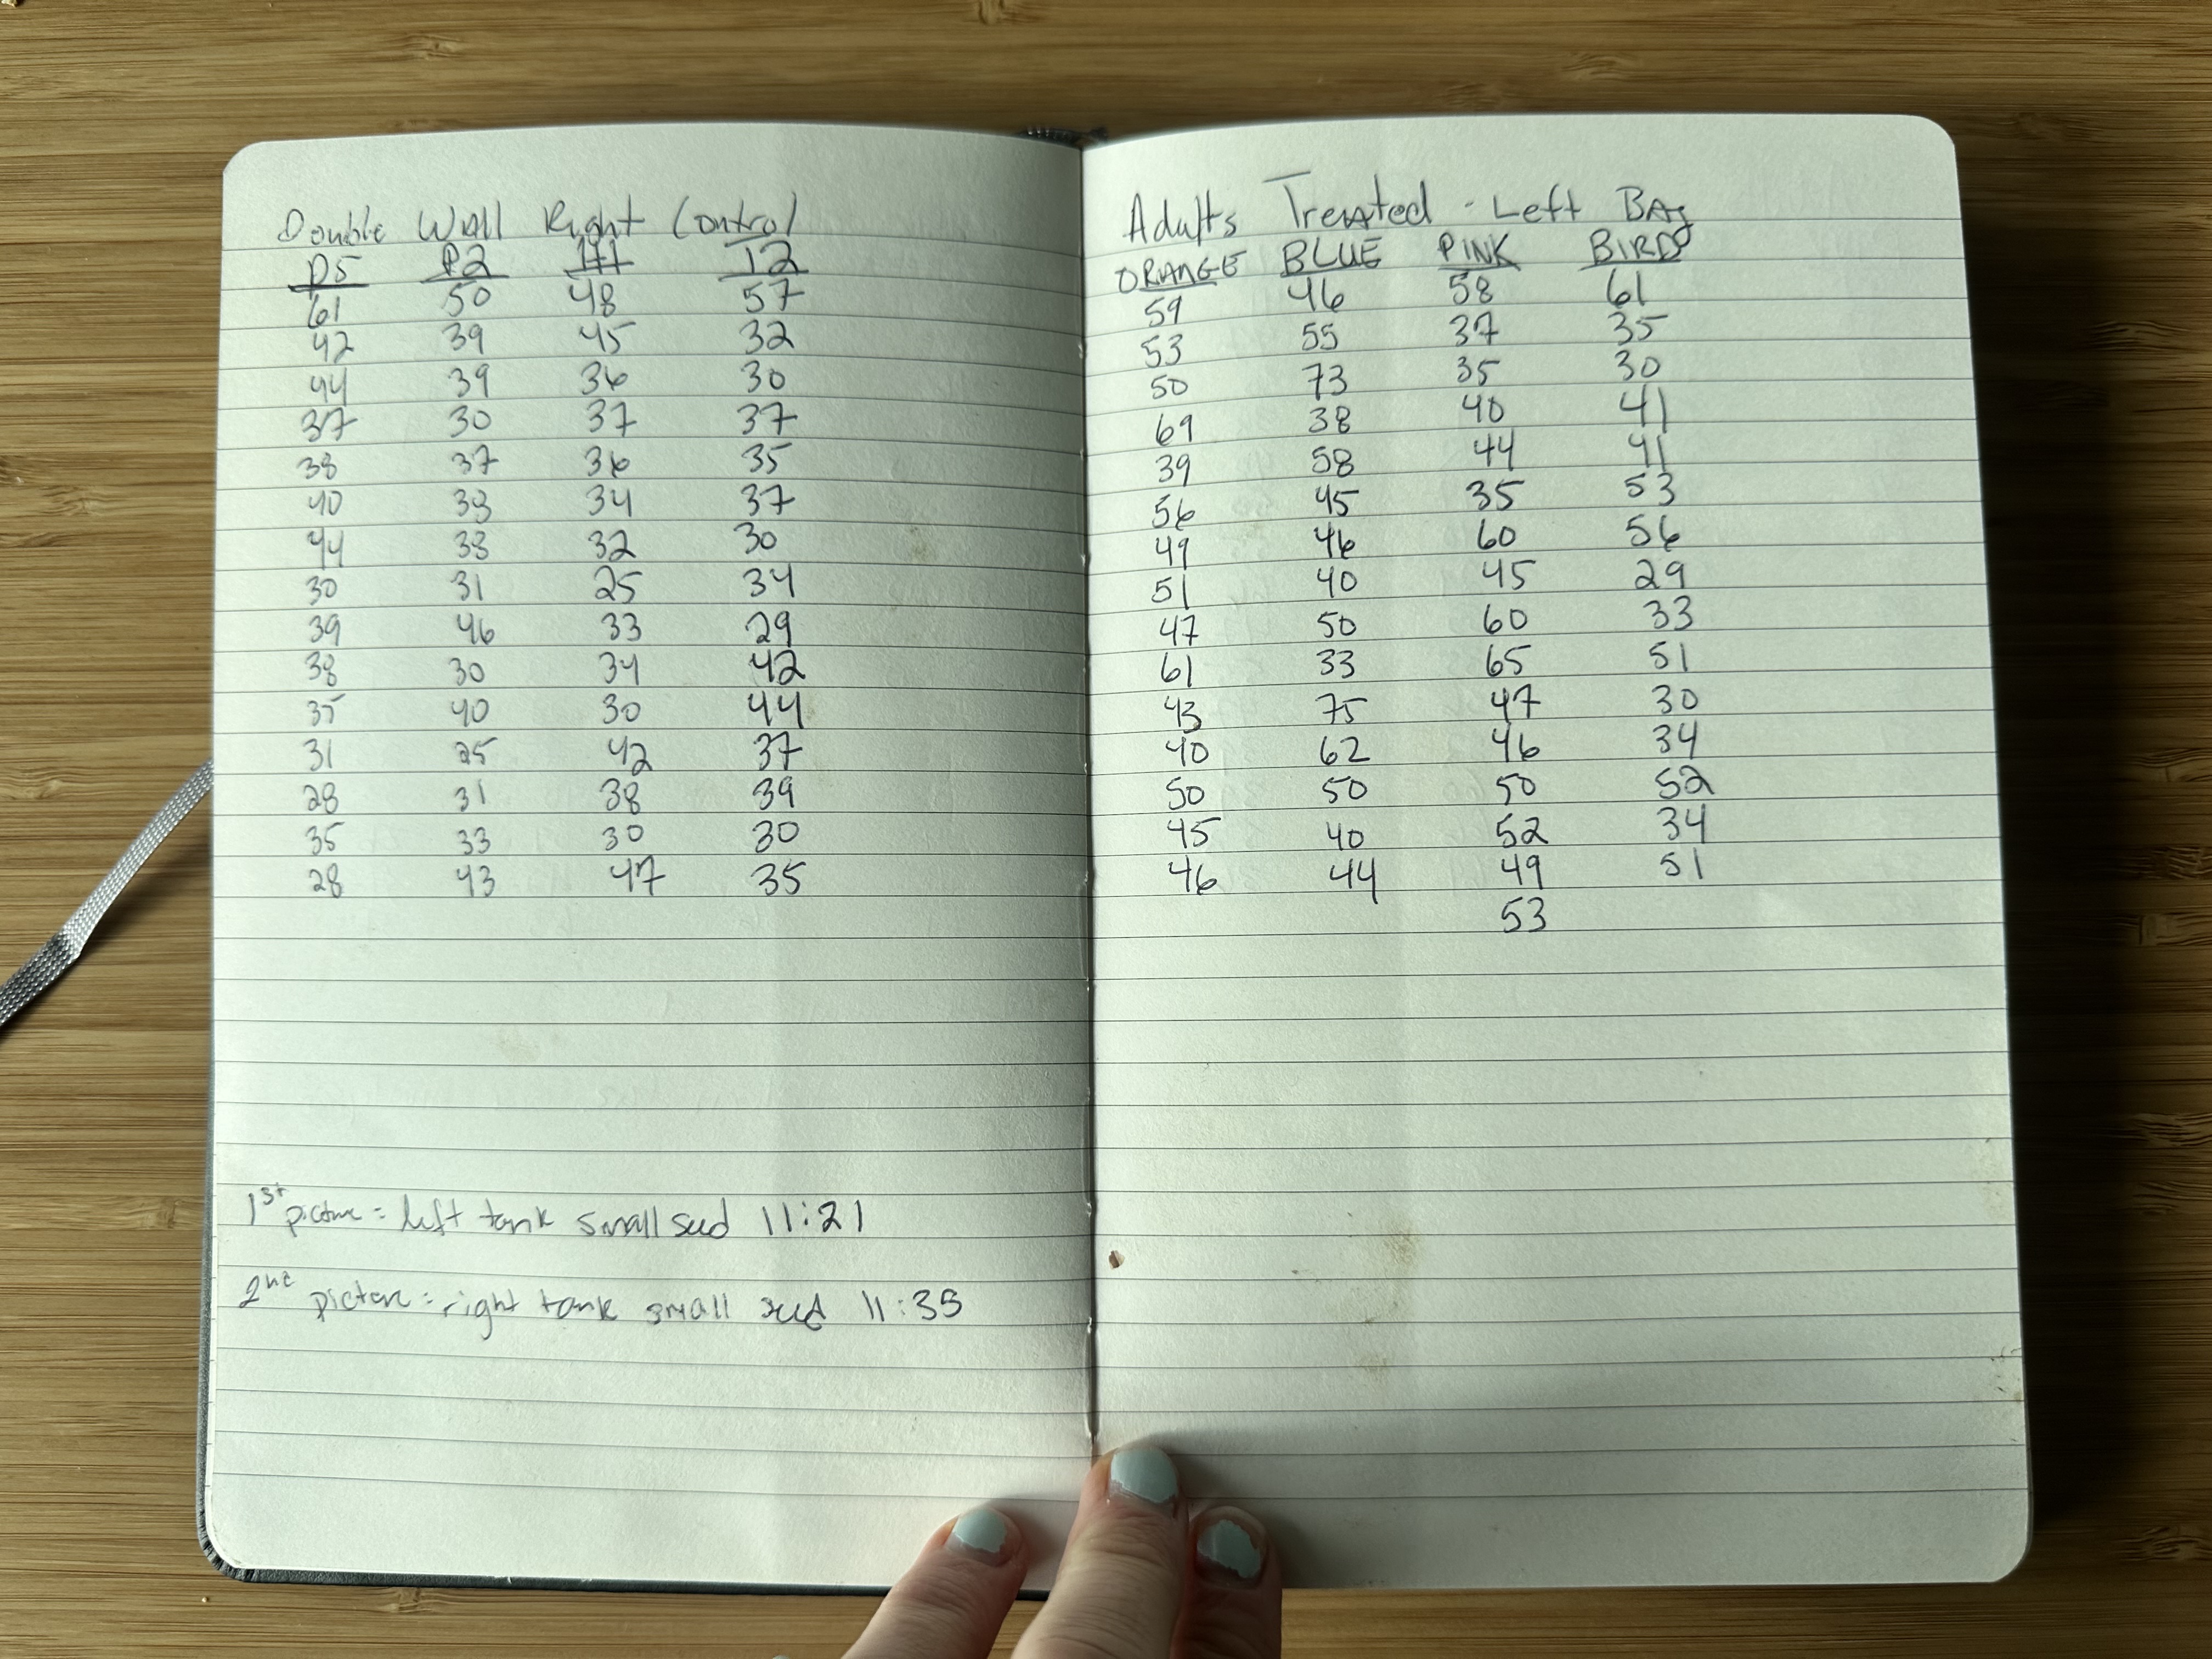 Double Wall Right Control
D5 R2 H1 12
61 50 48 57
42 39 45 32
44 39 36 30
37 30 37 37
38 37 36 35
40 33 34 37
44 38 32 30
30 31 25 34
39 46 33 29
38 30 34 42
37 40 30 44
31 25 42 37
28 31 38 39
35 33 30 30
28 43 47 35
1st picture = left tank small sud 11:21
2nd picture = right tank small sud 11:35
Adults Treated - Left BA
ORANGE BLUE PINK BIRDS
59 46 58 61
53 55 37 35
50 73 35 30
69 38 40 41
39 58 44 41
56 45 35 53
49 46 60 56
51 40 45 29
47 50 60 33
61 33 65 51
43 75 47 30
40 62 46 34
50 50 50 52
45 40 52 34
46 44 49 51
53